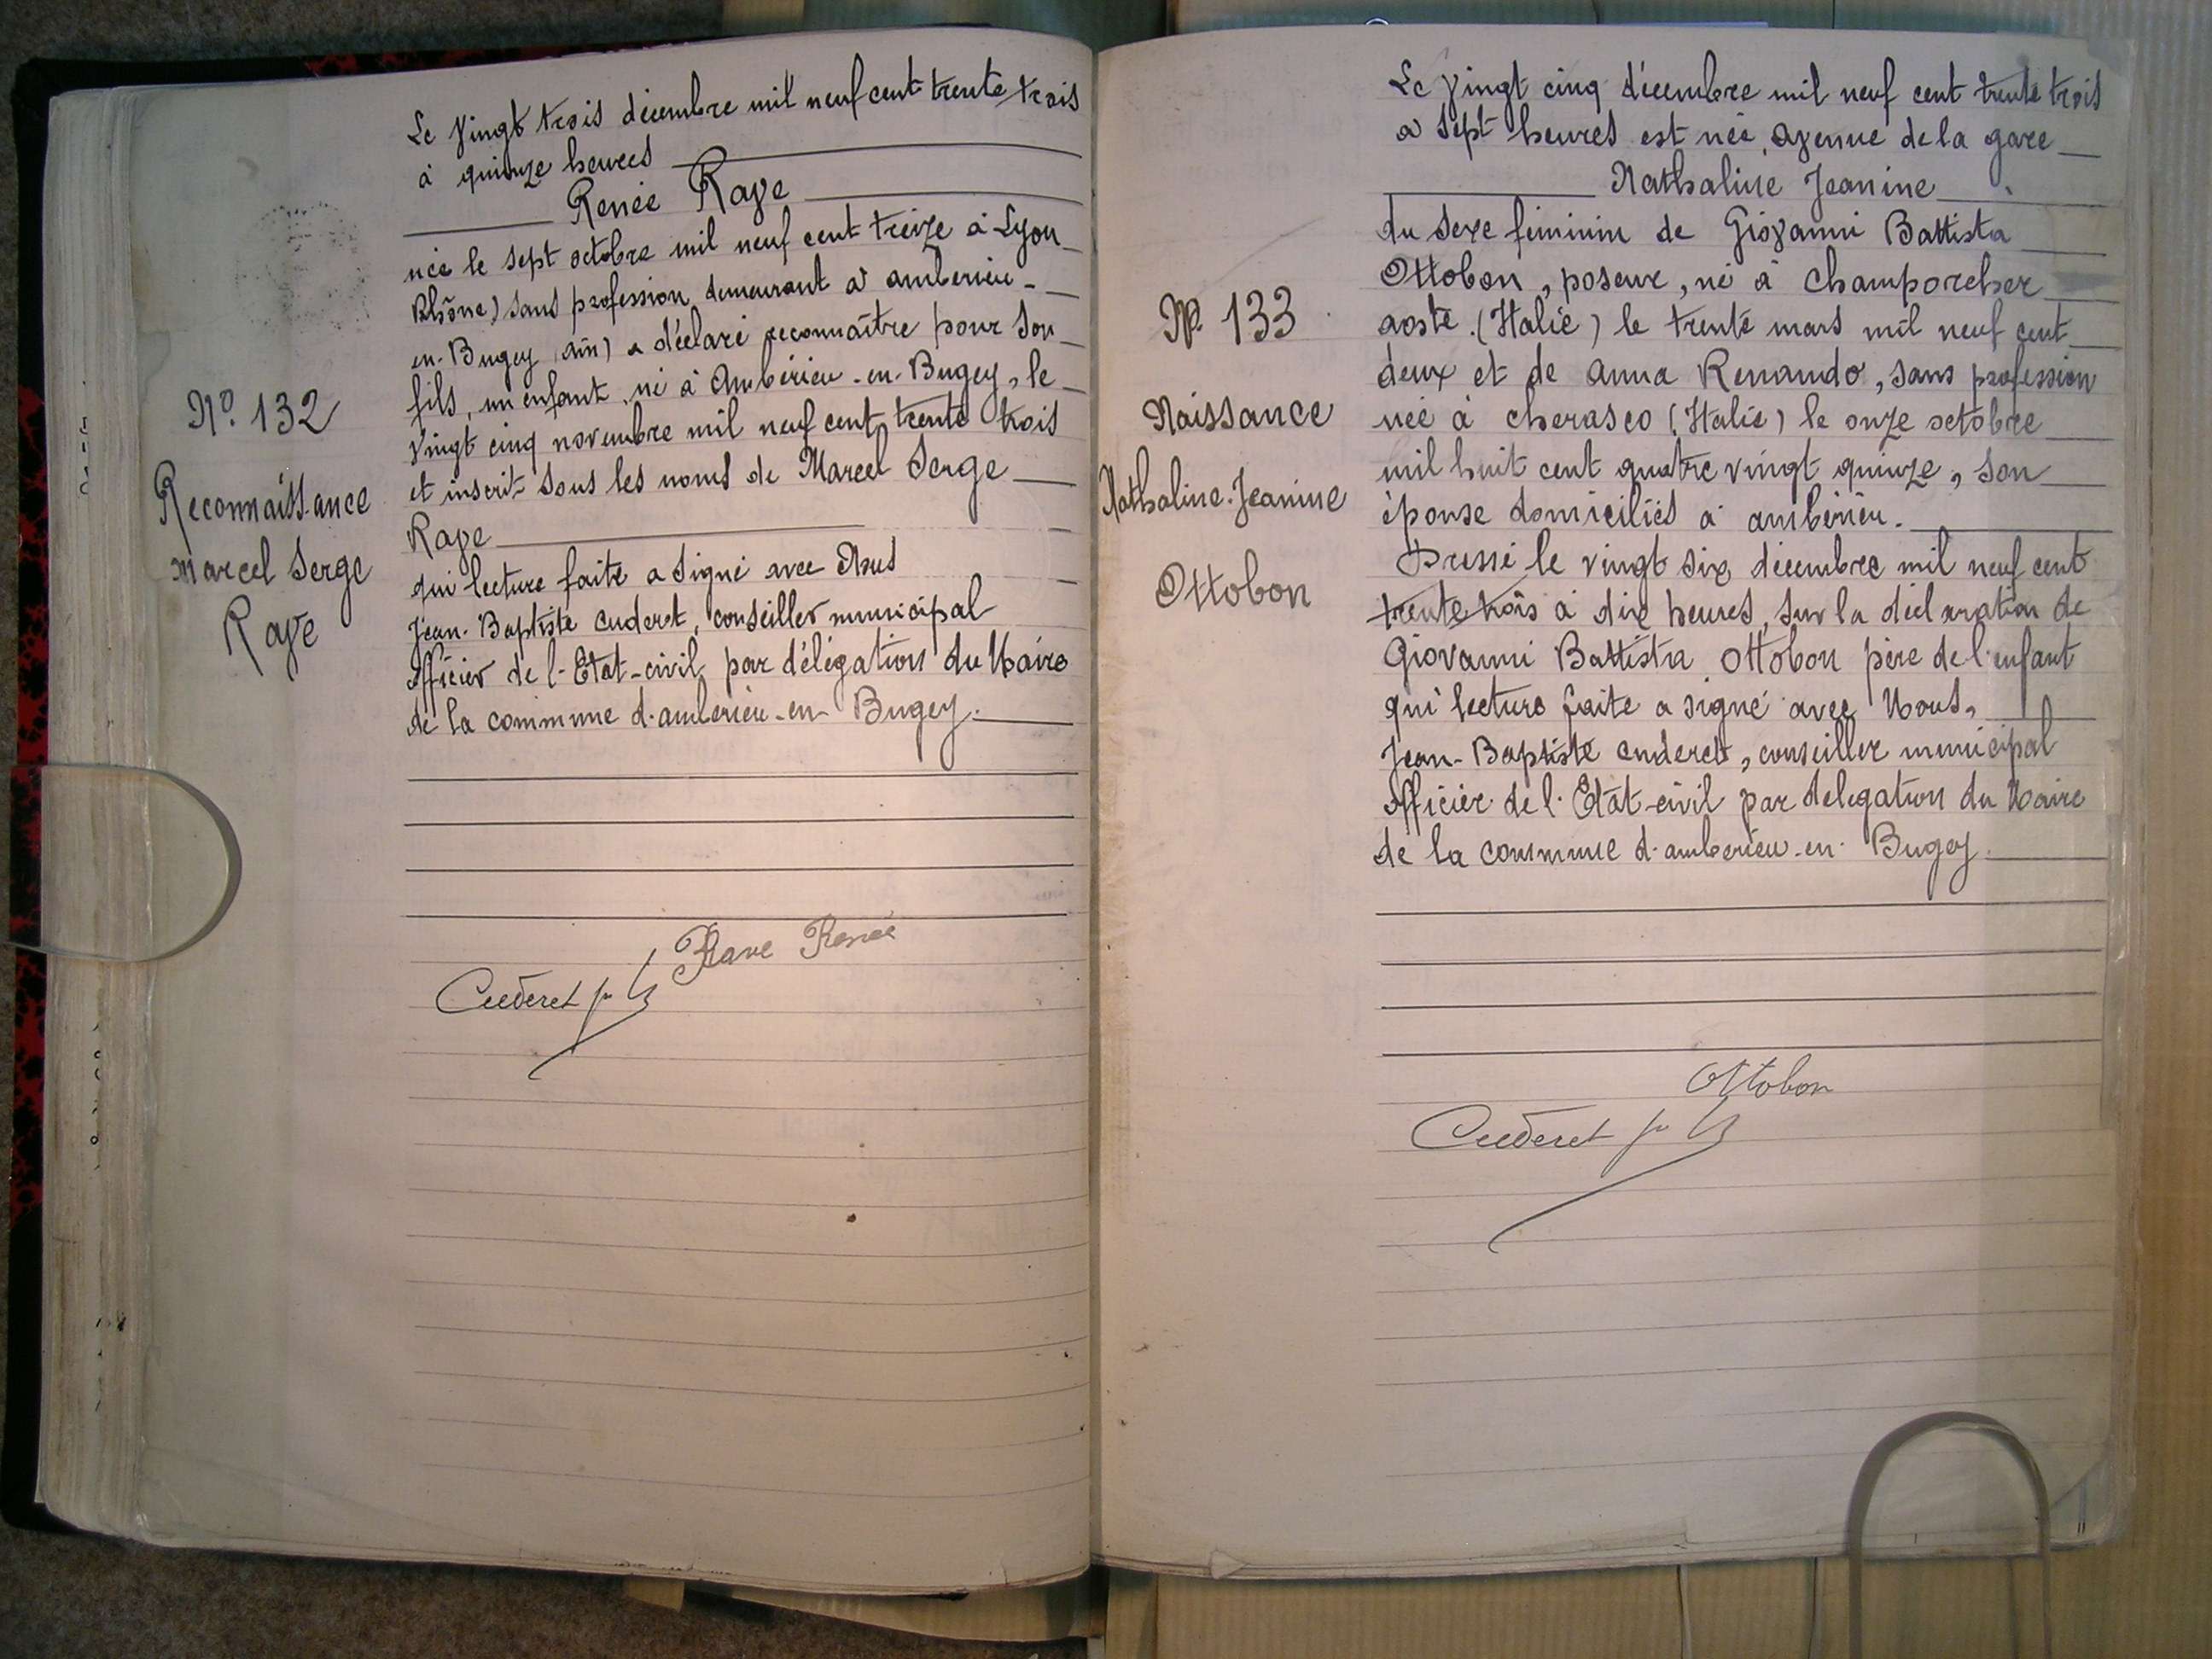 Le Vingt trois décembre mil neuf cent trente trois
à quinze heures
Renée Rave
née le sept octobre mil neuf cent treize à Lyon
Rhône) sans profession, demeurant à ambérieu-
en-Bugey (ain) a déclaré reconnaître pour son
fils, un enfant né à Ambérieu-en-Bugey, le
Vingt cinq novembre mil neuf cent trente trois
et inscrit sous les noms de Marcel Serge
Rave
qui lecture faite a signé avec Nous
Jean-Baptiste Cuderet, conseiller municipal
officier de l'Etat-civil par délégation du Maire
de la commune d'ambérieu-en-Bugey.
N° 132
Reconnaissance
Marcel Serge
Rave
Rave Renée
Cuderet
Le Vingt cinq décembre mil neuf cent trente trois
a sept heures est née, avenue de la gare
Nathaline Jeanine
du sexe féminin de Giovanni Battista
Ottobon, poseur, né à Champorcher
aoste (Italie) le trente mars mil neuf cent
deux et de Anna Renaudo, sans profession
née à cherasco (Italie) le onze octobre
mil huit cent quatre vingt quinze, son
épouse domiciliés à ambérieu.
Dressé le vingt six décembre mil neuf cent
trente trois à dix heures, sur la déclaration de
Giovanni Battista Ottobon père de l'enfant
qui lecture faite a signé avec Nous,
Jean-Baptiste Cuderet, conseiller municipal
officier de l'Etat-civil par delegation du Maire
de la commune d'ambérieu-en-Bugey
N° 133
Naissance
Nathaline-Jeanine
Ottobon
Ottobon
Cuderet